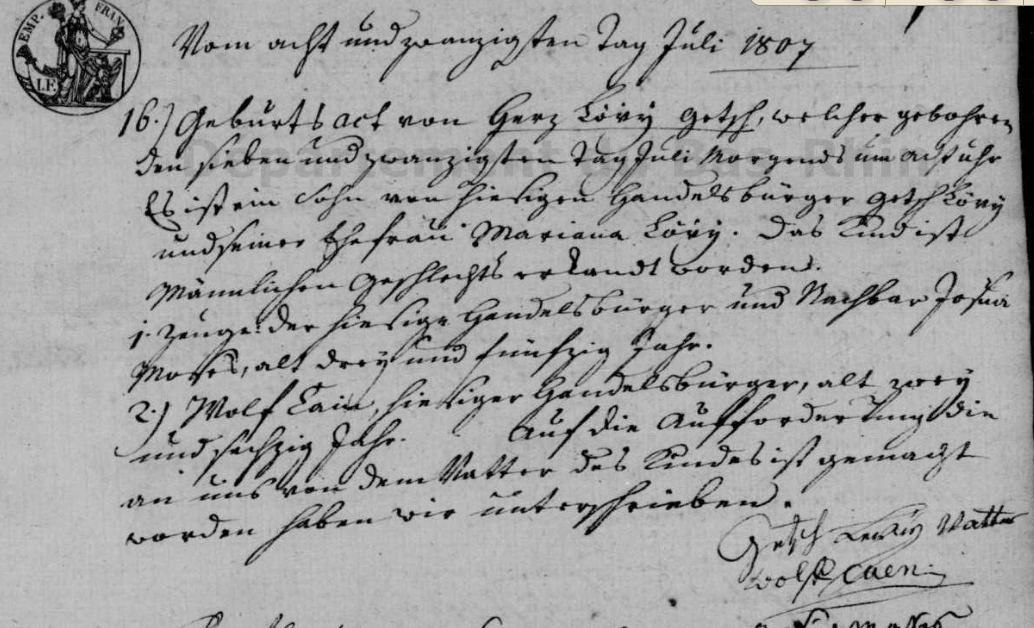 EMP. FRAN.
Vom acht und zwanzigsten Tag Juli 1807
16.) Geburts act von Herz Lövÿ Getsch, welcher gebohren
den sieben und zwanzigsten Tag Juli Morgends um acht uhr
Es ist ein Sohn von hiesigen Handelsbürger Getsch Lövÿ
und seiner Ehefrau Mariana Lövÿ. Das Kind ist
Männlichen Geschlechts erkandt worden.
1. Zeuge: der hiesige Handelsbürger und Nachbar Josua
Moses, alt dreÿ und fünfzig Jahr.
2.) Wolf Cain, hiesiger Handelsbürger, alt zweÿ
und sechzig Jahr. Auf die Aufforderung die
an uns von dem Vatter des Kindes ist gemacht
worden haben wir unterschrieben.
Getsch Vatter
Wolf Caen